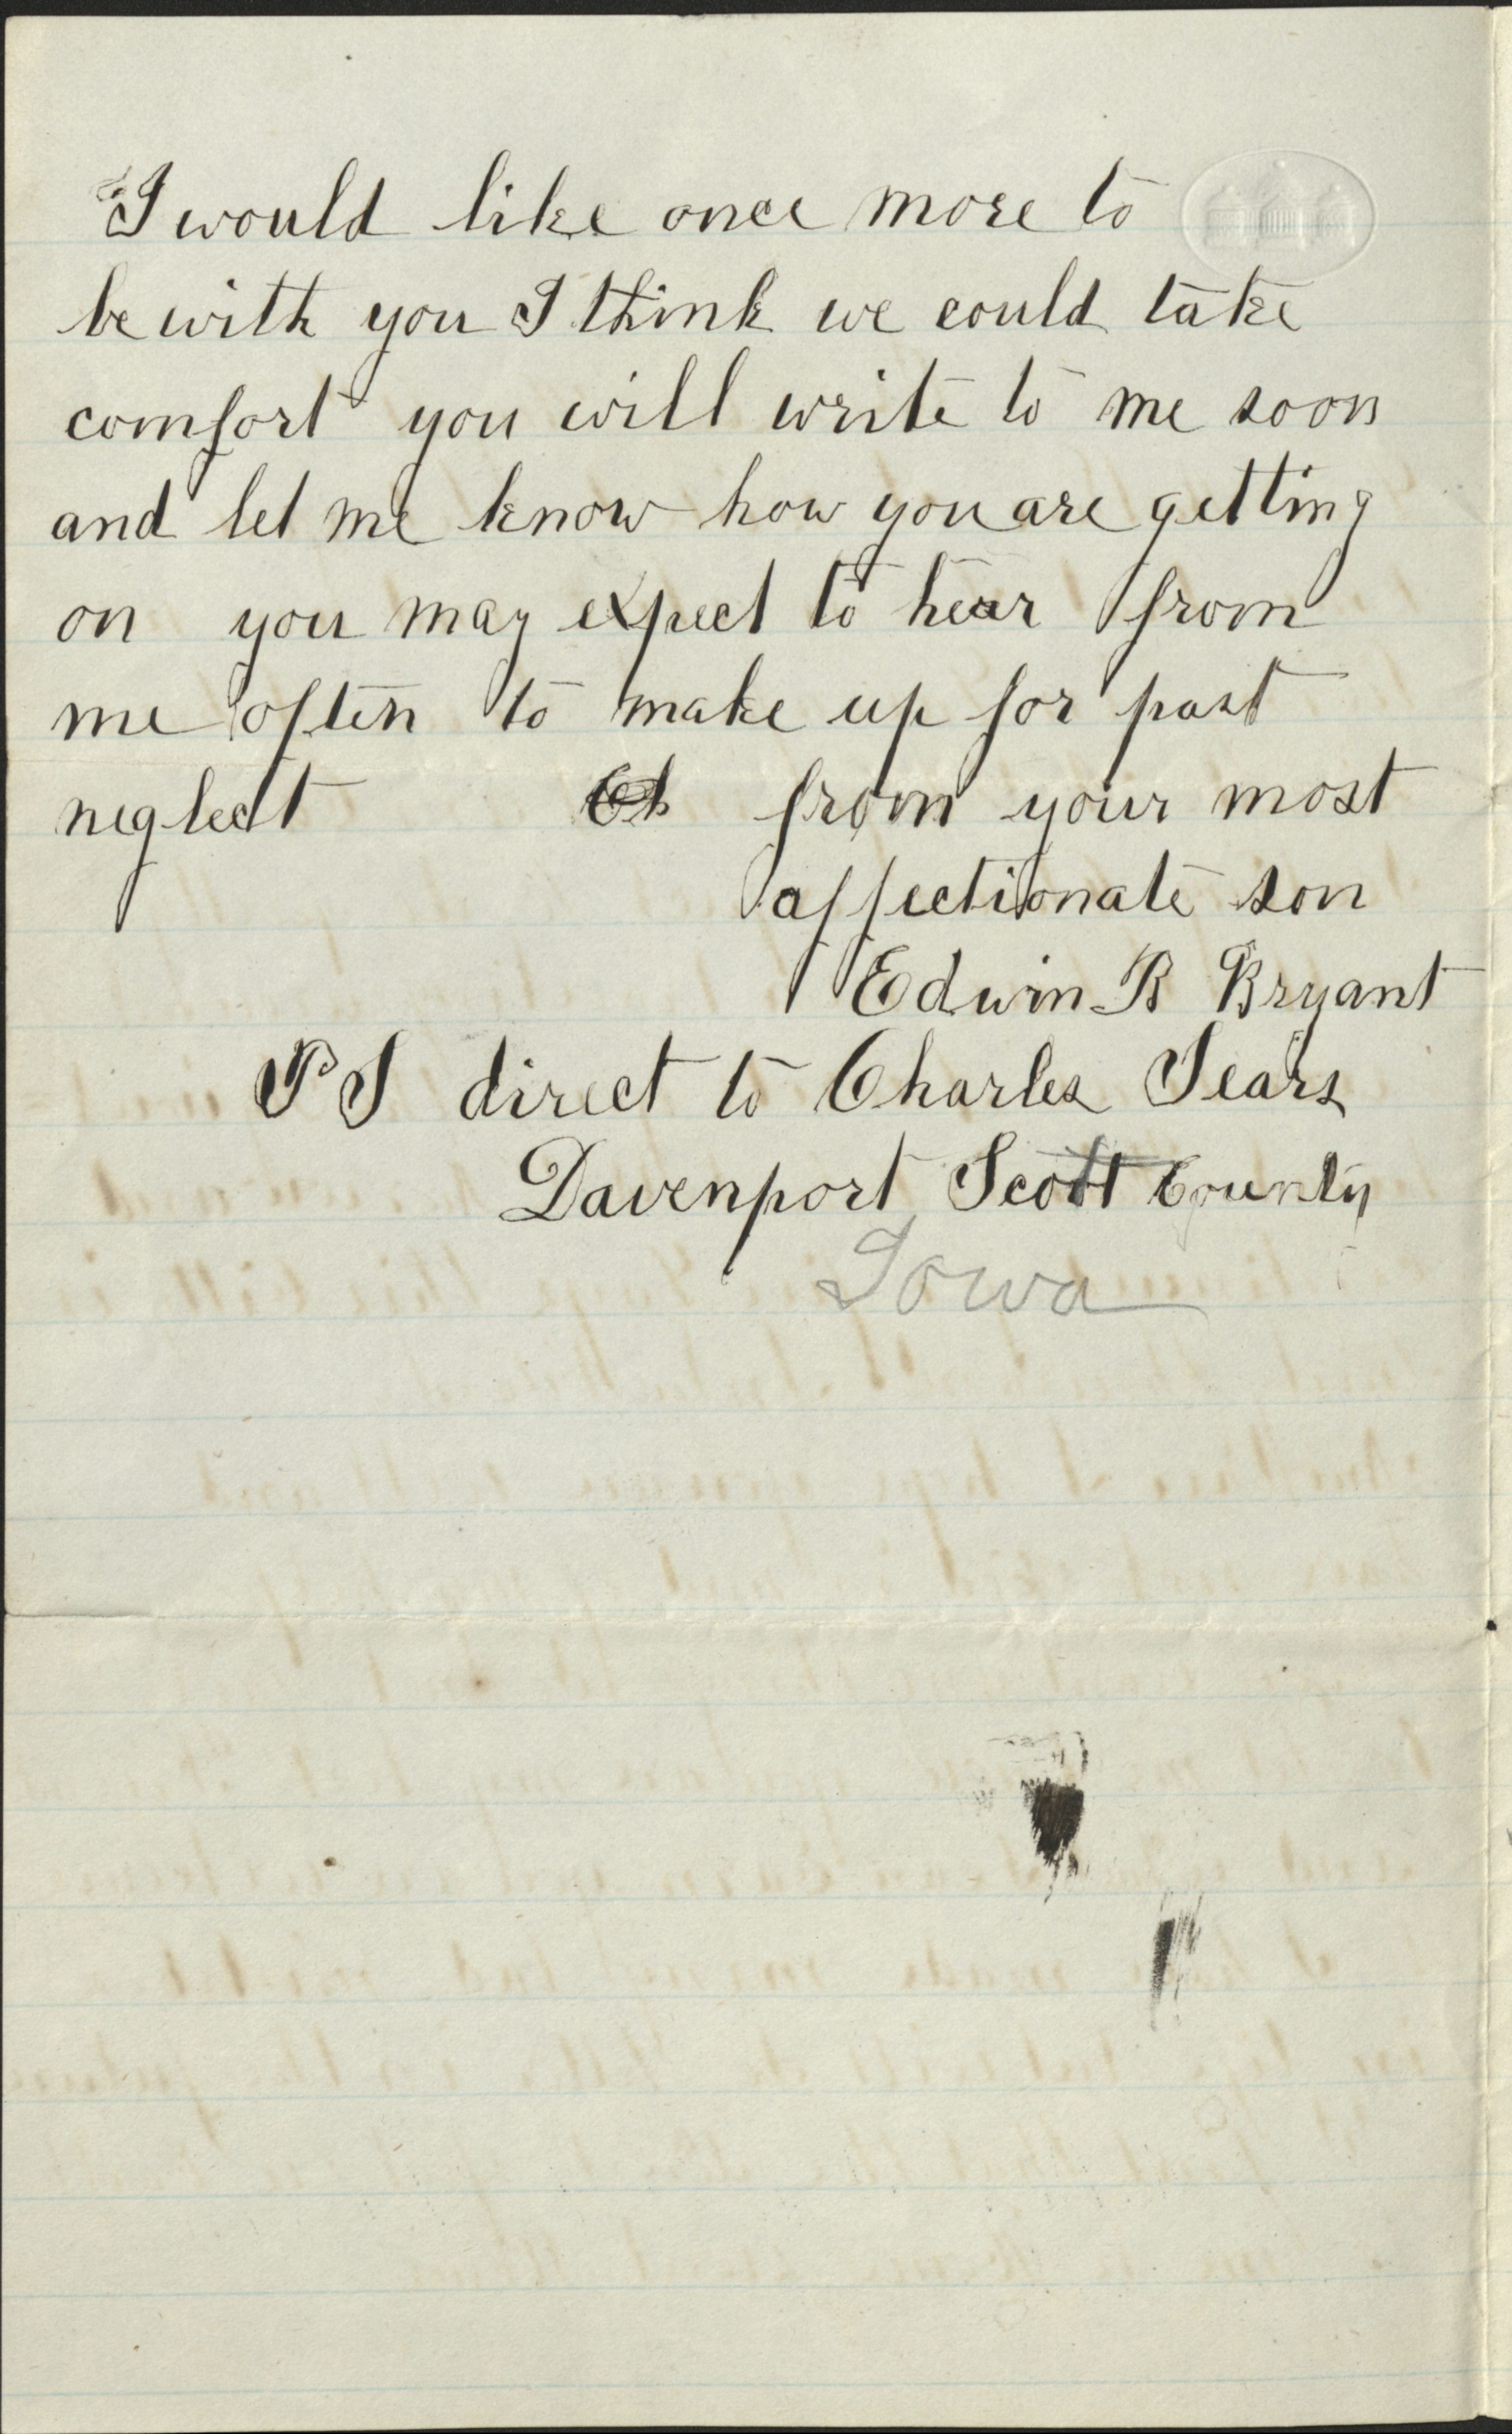 I would like once more to
be with you I think we could take
comfort you will write to me soon
and let me know how you are getting
on you may expect to hear from
me often to make up for past
neglect from your most
affectionate son
Edwin B Bryant
P S direct to Charles Sears
Davenport Scott County
Iowa